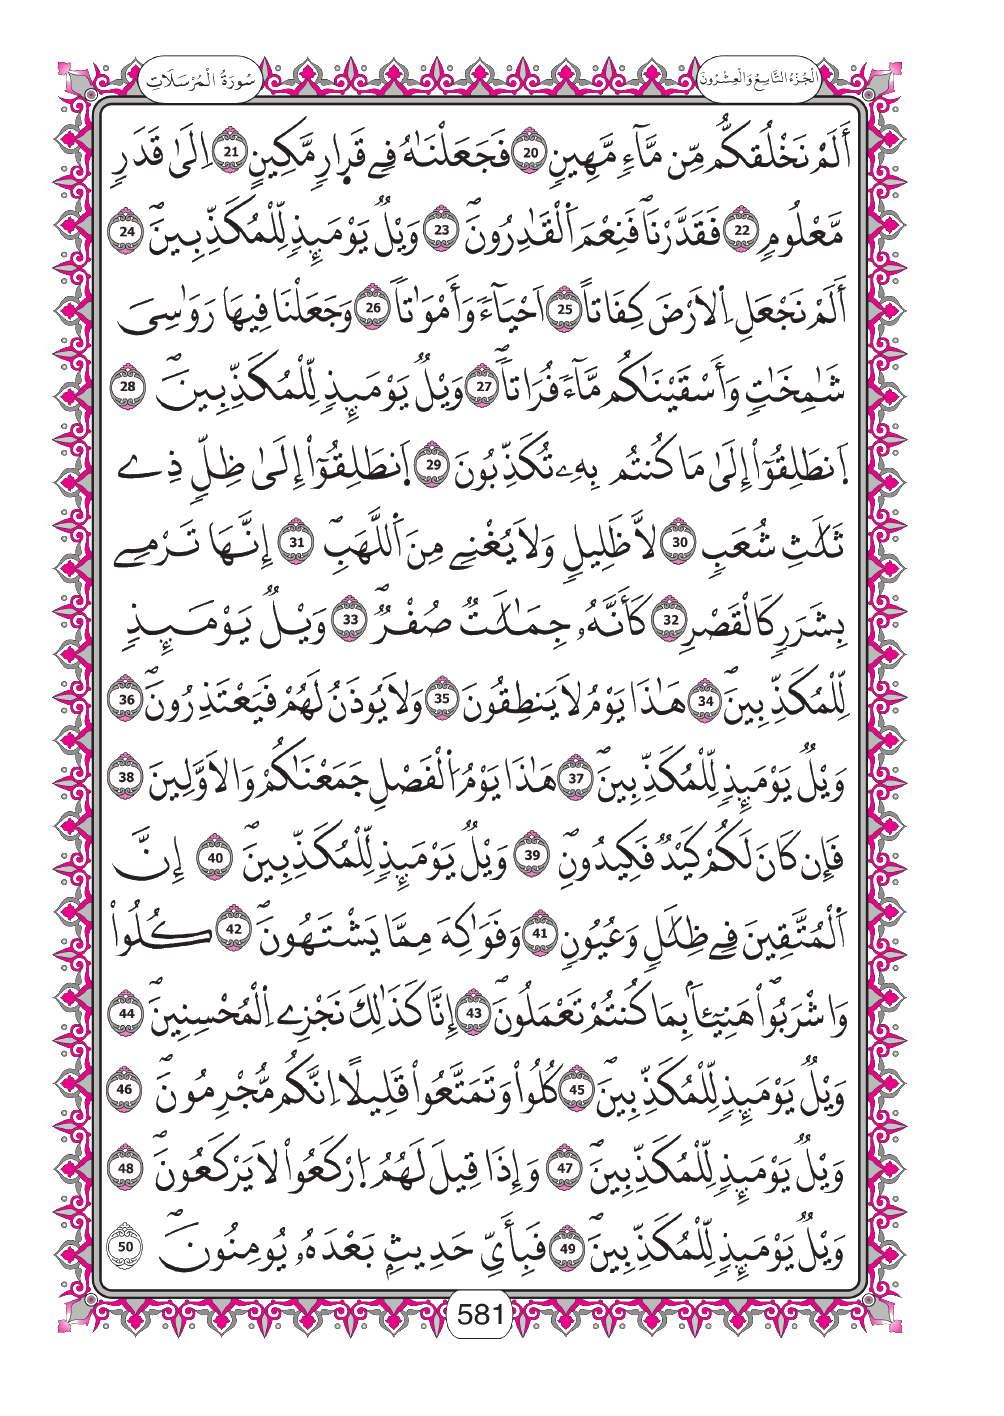 الْجُزْءُ التَّاسِعُ وَالْعِشْرُونَ
سُورَةُ الْمُرْسَلَاتِ
أَلَمْ نَخْلُقكُّم مِّن مَّآءٖ مَّهِينٖ 20 فَجَعَلْنَٰهُ فِے قَرارٖ مَّكِينٍ 21 اِلَىٰ قَدَرٖ
مَّعْلُومٖ 22 فَقَدَّرْنَاۖ فَنِعْمَ اَ۬لْقَٰدِرُونَۖ 23 وَيْلٞ يَوْمَئِذٖ لِّلْمُكَذِّبِينَۖ 24
أَلَمْ نَجْعَلِ اِ۬لَارْضَ كِفَاتاً 25 اَحْيَآءٗ وَأَمْوَٰتاٗ 26 وَجَعَلْنَا فِيهَا رَوَٰسِىَ
شَٰمِخَٰتٖ وَأَسْقَيْنَٰكُم مَّآءٗ فُرَاتاٗۖ 27 وَيْلٞ يَوْمَئِذٖ لِّلْمُكَذِّبِينَۖ 28
اَ۪نطَلِقُوٓاْ إِلَىٰ مَا كُنتُم بِهِۦ تُكَذِّبُونَ 29 اَ۪نطَلِقُوٓاْ إِلَىٰ ظِلّٖ ذِے
ثَلَٰثِ شُعَبٖ 30 لَّا ظَلِيلٖ وَلَا يُغْنِے مِنَ اَ۬للَّهَبِۖ 31 إِنَّهَا تَرْمِے
بِشَرَرٖ كَالْقَصْرِ 32 كَأَنَّهُۥ جِمَٰلَٰتٞ صُفْرٞۖ 33 وَيْلٞ يَوْمَئِذٖ
لِّلْمُكَذِّبِينَۖ 34 هَٰذَا يَوْمُ لَا يَنطِقُونَ 35 وَلَا يُوذَنُ لَهُمْ فَيَعْتَذِرُونَۖ 36
وَيْلٞ يَوْمَئِذٖ لِّلْمُكَذِّبِينَۖ 37 هَٰذَا يَوْمُ اُ۬لْفَصْلِ جَمَعْنَٰكُمْ وَالَاوَّلِينَ 38
فَإِن كَانَ لَكُمْ كَيْدٞ فَكِيدُونِۖ 39 وَيْلٞ يَوْمَئِذٖ لِّلْمُكَذِّبِينَۖ 40 إِنَّ
اَ۬لْمُتَّقِينَ فِے ظِلَٰلٖ وَعُيُونٖ 41 وَفَوَٰكِهَ مِمَّا يَشْتَهُونَۖ 42 كُلُواْ
وَاشْرَبُواْۖ هَنِيٓـَٔاۢ بِمَا كُنتُمْ تَعْمَلُونَۖ 43 إِنَّا كَذَٰلِكَ نَجْزِے اِ۬لْمُحْسِنِينَۖ 44
وَيْلٞ يَوْمَئِذٖ لِّلْمُكَذِّبِينَۖ 45 كُلُواْ وَتَمَتَّعُواْ قَلِيلًا اِنَّكُم مُّجْرِمُونَۖ 46
وَيْلٞ يَوْمَئِذٖ لِّلْمُكَذِّبِينَۖ 47 وَإِذَا قِيلَ لَهُمُ اُ۪رْكَعُواْ لَا يَرْكَعُونَۖ 48
وَيْلٞ يَوْمَئِذٖ لِّلْمُكَذِّبِينَۖ 49 فَبِأَىِّ حَدِيثِۢ بَعْدَهُۥ يُومِنُونَۖ 50
581